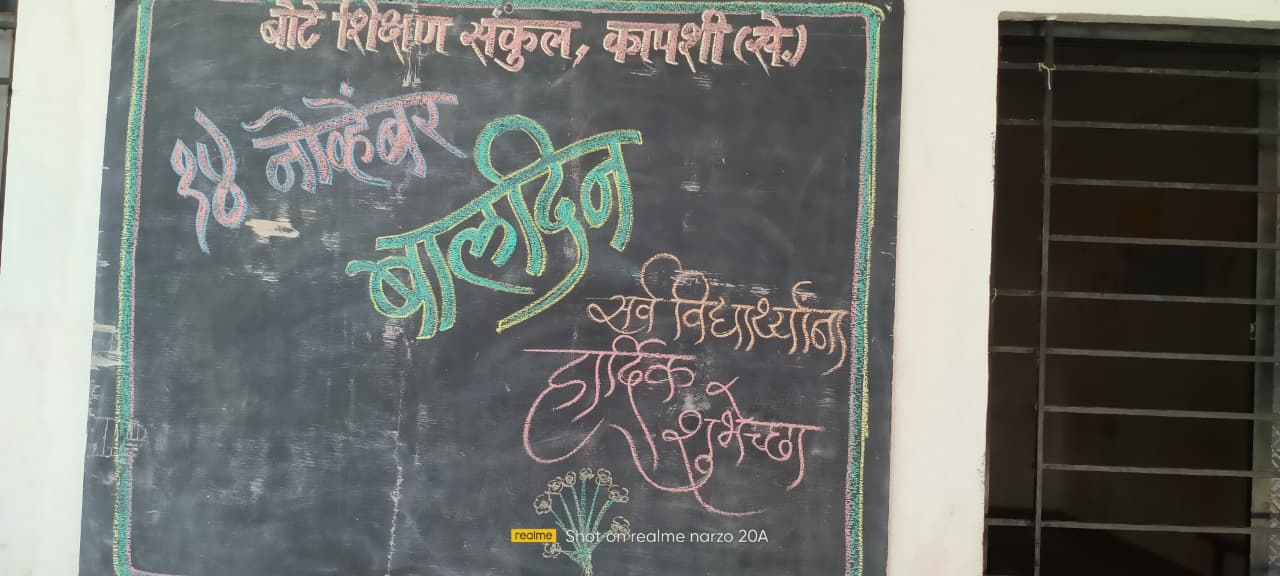 बोटे शिक्षण संकुल, कापशी (खे.)
१४ नोव्हेंबर
बालदिन
सर्व विद्यार्थ्यांना
हार्दिक
शुभेच्छा
realme Shot on realme narzo 20A